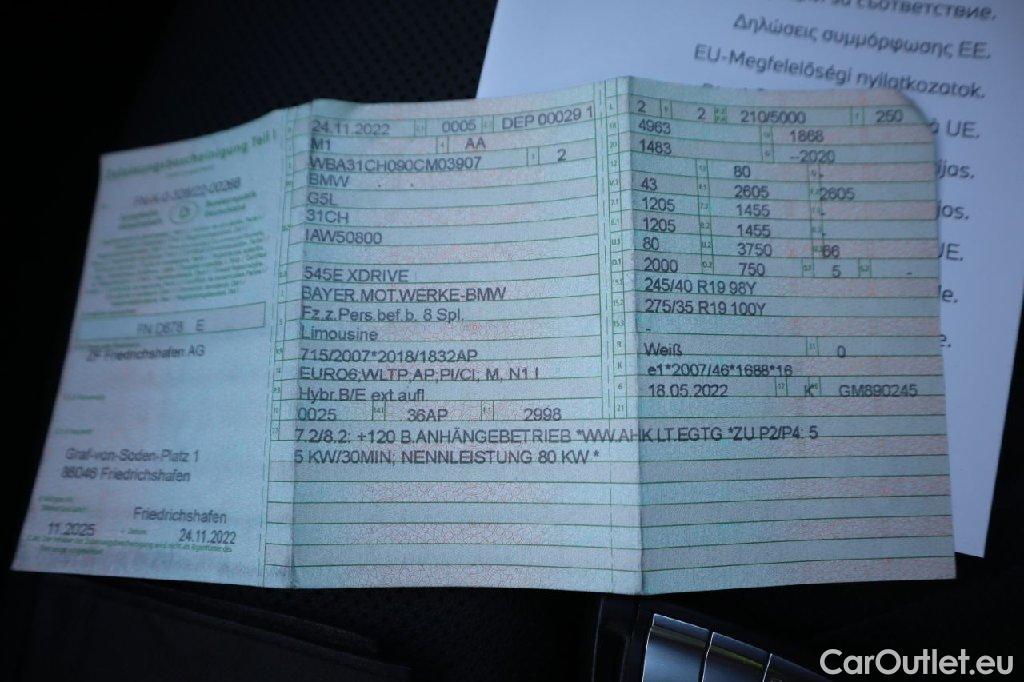 съответствие.
Δηλώσεις συμμόρφωσης ΕΕ.
EU-Megfelelőségi nyilatkozatok.
UE.
Zulassungsbescheinigung Teil I
FN D878 E
ZF Friedrichshafen AG
Graf-von-Soden-Platz 1
88046 Friedrichshafen
Friedrichshafen
11.2025
24.11.2022
24.11.2022 0005 DEP 00029 1
M1 AA
WBA31CH090CM03907 2
BMW
G5L
31CH
IAW50800
545E XDRIVE
BAYER.MOT.WERKE-BMW
Fz.z.Pers.bef.b. 8 Spl.
Limousine
715/2007*2018/1832AP
EURO6;WLTP;AP;PI/CI; M, N1 I
Hybr.B/E ext.aufl.
0025 36AP 2998
7.2/8.2: +120 B.ANHÄNGEBETRIEB *WW.AHK.LT.EGTG *ZU P2/P4: 5
5 KW/30MIN; NENNLEISTUNG 80 KW *
2 2 210/5000 250
4963 1868
1483 --2020
80 -
43 2605 2605
1205 1455 -
1205 1455 -
80 3750 66
2000 750 5 -
245/40 R19 98Y
275/35 R19 100Y
-
Weiß 0
e1*2007/46*1688*16
18.05.2022 K GM890245
CarOutlet.eu